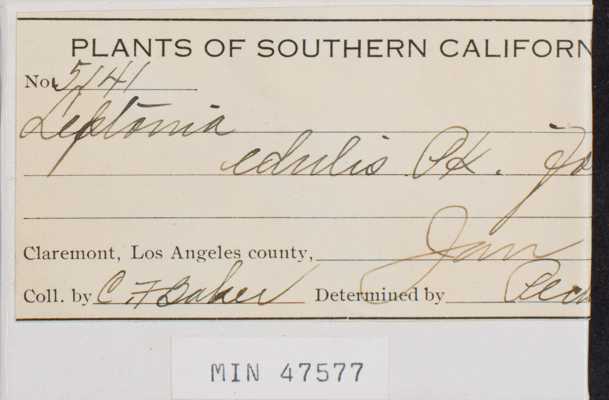 PLANTS OF SOUTHERN CALIFORN
No. 5141
Leptonia
edulis Pk.
Claremont, Los Angeles county, Jan
Coll. by C. F. Baker Determined by Pec
MIN 47577